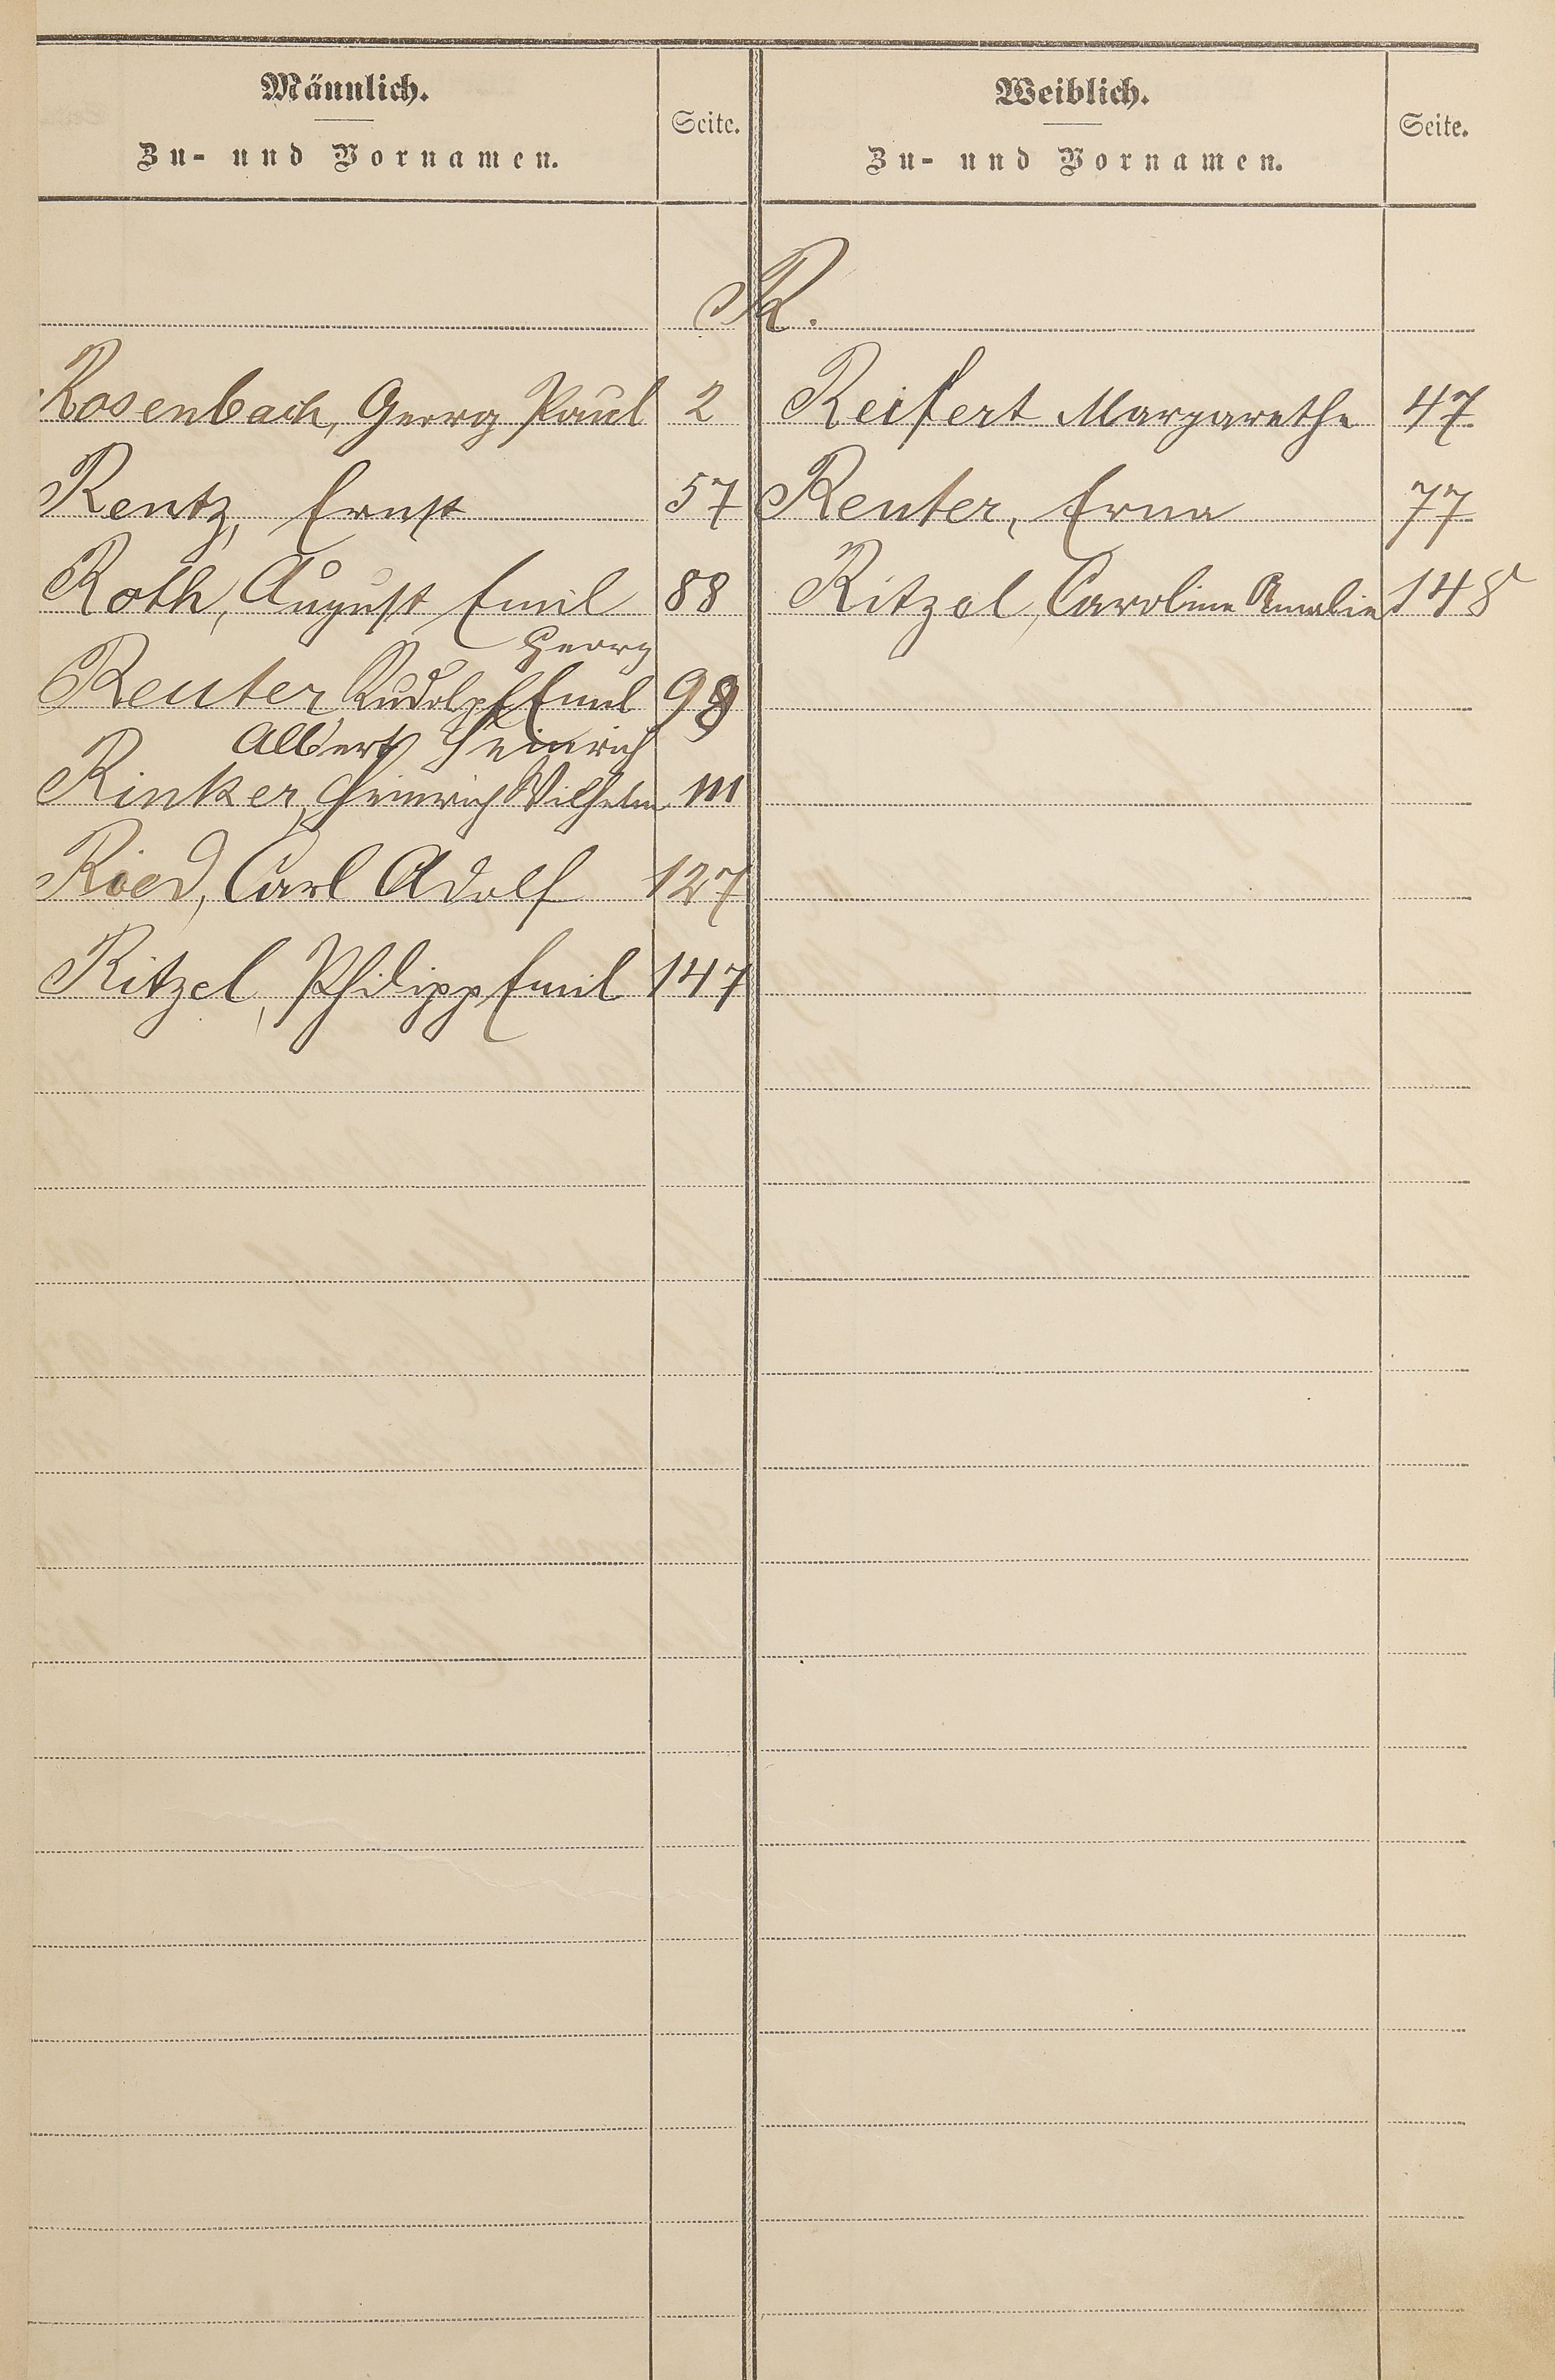 Männlich.
Zu- und Vornamen.
Seite.
Weiblich.
Zu- und Vornamen.
Seite.
R.
Rosenbach, Georg Paul 2
Reifert Margarethe 47
Rentz, Ernst 57
Reuter, Erna 77
Roth, August Emil 88
Ritzel, Caroline Amalie 148
Georg
Reuter Rudolph Emil 98
Albert Heinrich
Rinker, Heinrich Wilhelm 111
Ried, Carl Adolf 127
Ritzel, Philipp Emil 147